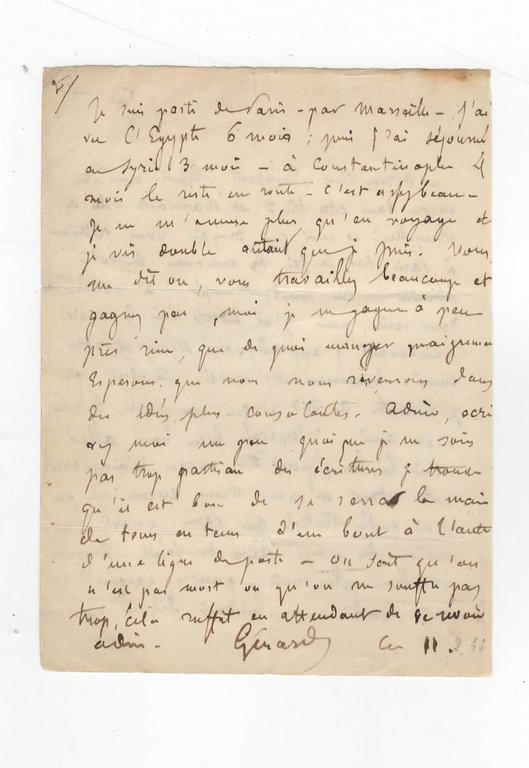 Je suis parti de Paris - par Marseille - J'ai
vu l'Egypte 6 mois ; puis j'ai séjourné
en Syrie 3 mois - à Constantinople 4
mois le reste en route - c'est assez beau -
Je ne m'amuse plus qu'en voyage et
je vis double autant que je puis. Vous,
me dit on, vous travaillez beaucoup et
gagnez peu, moi je ne gagne à peu
près rien, que de quoi manger maigrement
Esperons que nous nous reverrons dans
des idées plus consolantes. Adieu, ecri
vez moi un peu quoique je ne sois
pas trop partisan des écritures je trouve
qu'il est bon de se serrer la main
de tems en tems d'un bout à l'autre
d'une ligne de poste - on sait qu'on
n'est pas mort ou qu'on ne souffre pas
trop, cela suffit en attendant de se revoir
adieu - Gérard Ce 11.